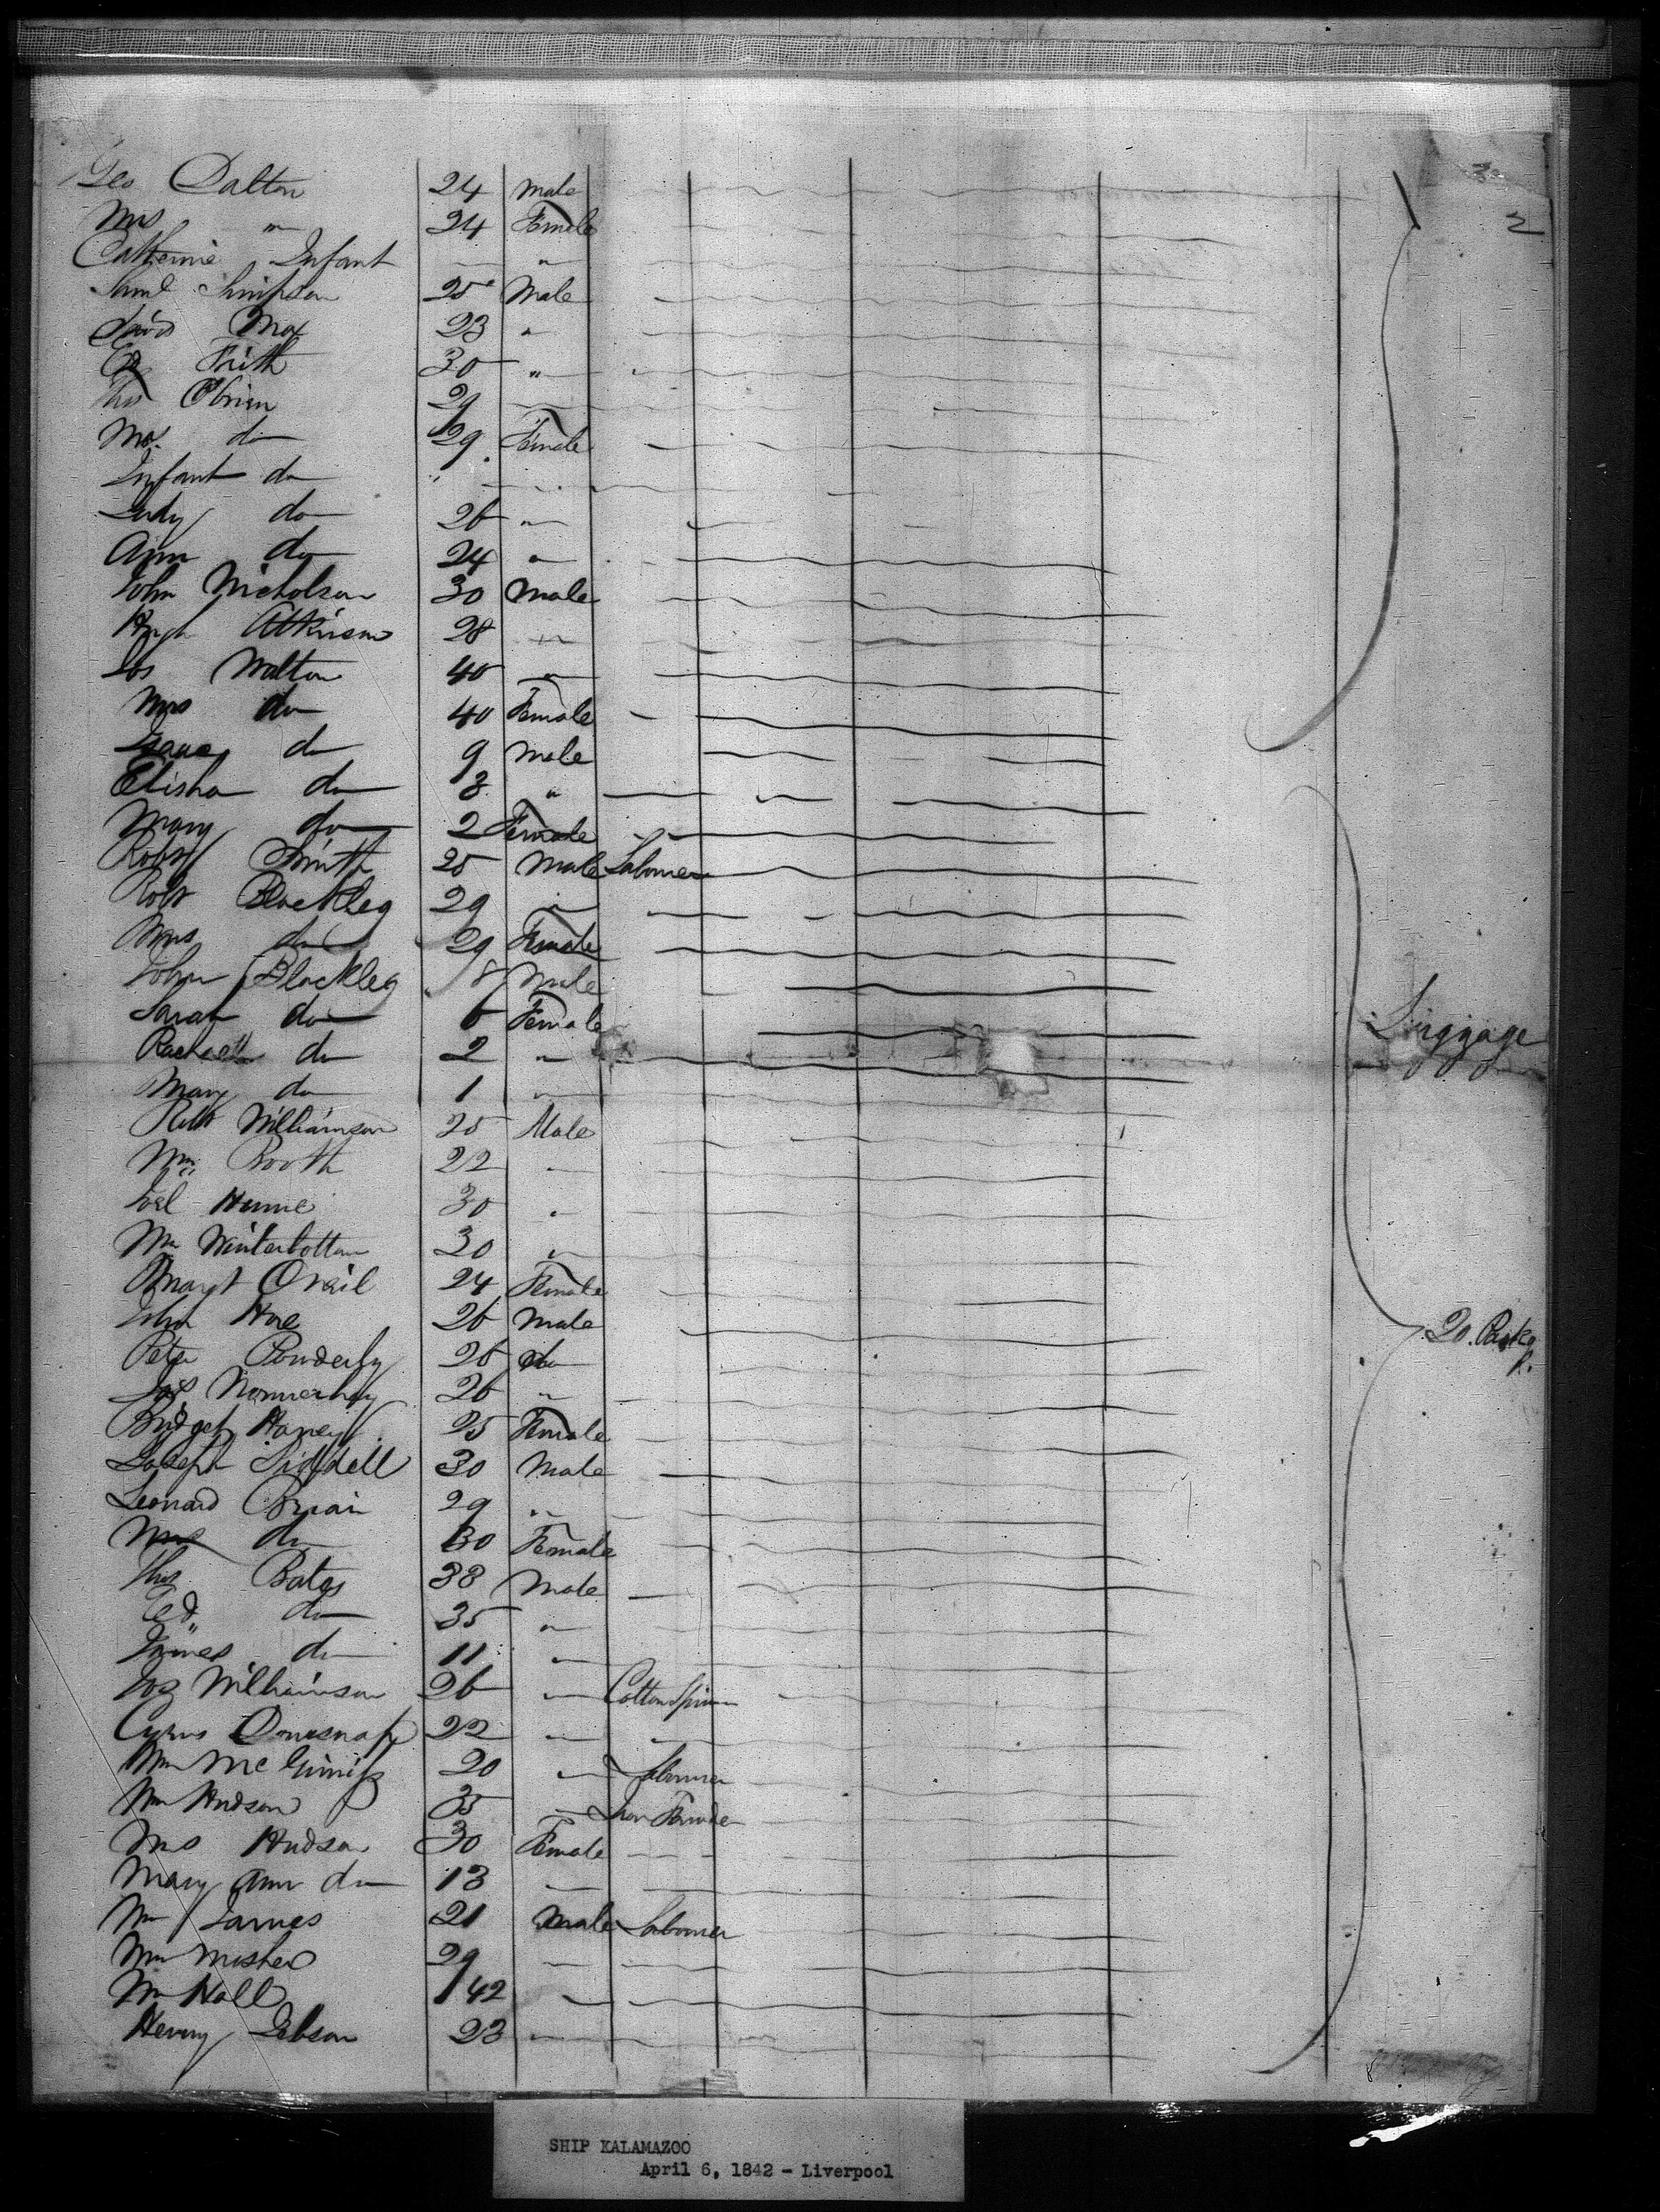 2
Geo Dalton 24 Male
Mrs " 24 Female
Catherine Infant "
Saml Simpson 25 Male
David May 23 "
Frith 30 "
Thos OBrien 29
Mrs. do 29 Female
Infant do
Judy do 26 "
Ann do 24 "
John Nicholson 30 Male
Hugh Atkinson 28 "
Jos Walton 40 "
Mrs do 40 Female
Isaac do 9 Male
Elisha do 8 "
Mary do 2 Female
Robt Smith 25 Male Labourer
Robt Blackleg 29 "
Mrs do 29 Female
John Blackleg 8 Male
Sarah do 6 Female
Luggage
Rachell do 2 "
Mary do 1 "
Robt Williamson 25 Male
Wm Booth 22 "
Joel Hume 30 "
Wm Winterbottom 30 "
Margt Oneil 24 Female
John Hoe 26 Male
20.
Peter 26 do
Jas 26 "
Bridget Haney 25 Female
Joseph Siddell 30 Male
Leonard Brain 29 "
Mrs do 30 Female
Thos Bates 38 Male
Ed. do 35 "
James do 11 "
Jos Williamson 26 " Cotton Spinn
Cyrus 22 " "
Wm McGinniss 20 " Labourer
Wm Hudson 35 "
Mrs Hudson 30 Female
Mary Ann do 13 "
Wm James 21 Male Labourer
Wm Mosher 29
Wm Hall 42
Henry 23
SHIP KALAMAZOO
April 6, 1842 - Liverpool